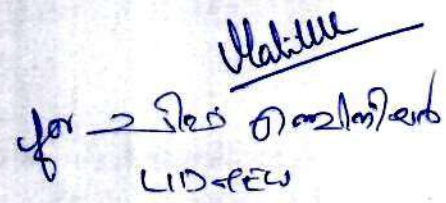 for ചീഫ് എഞ്ചിനിയർ
LID&EW